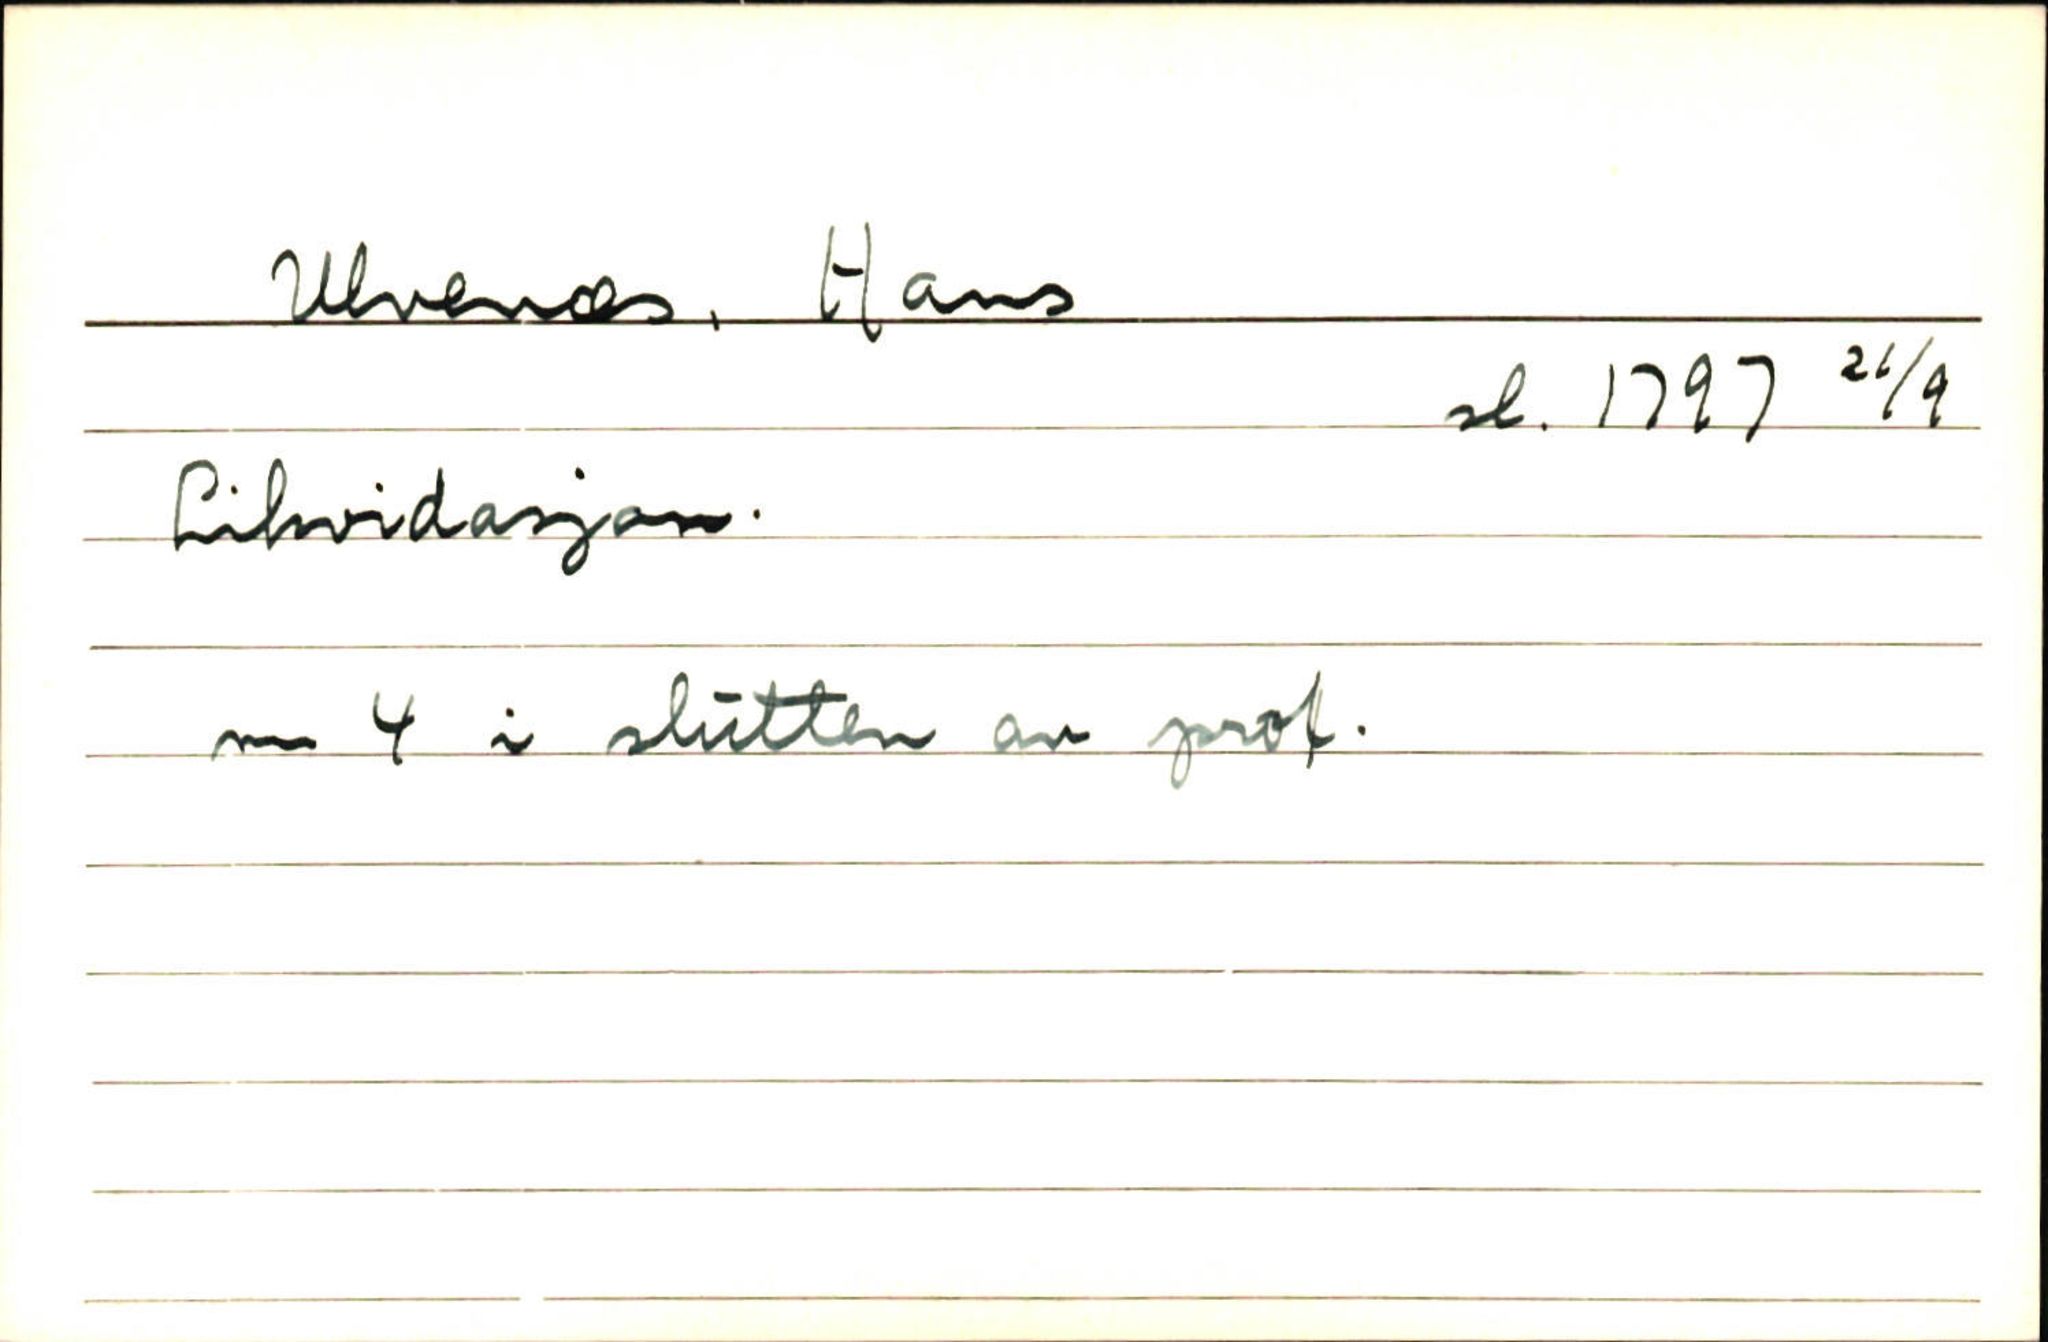 Ulvenæs, Hans
sl. 1797 21/9
Likvidasjon.
nr 4 i slutten av prot.